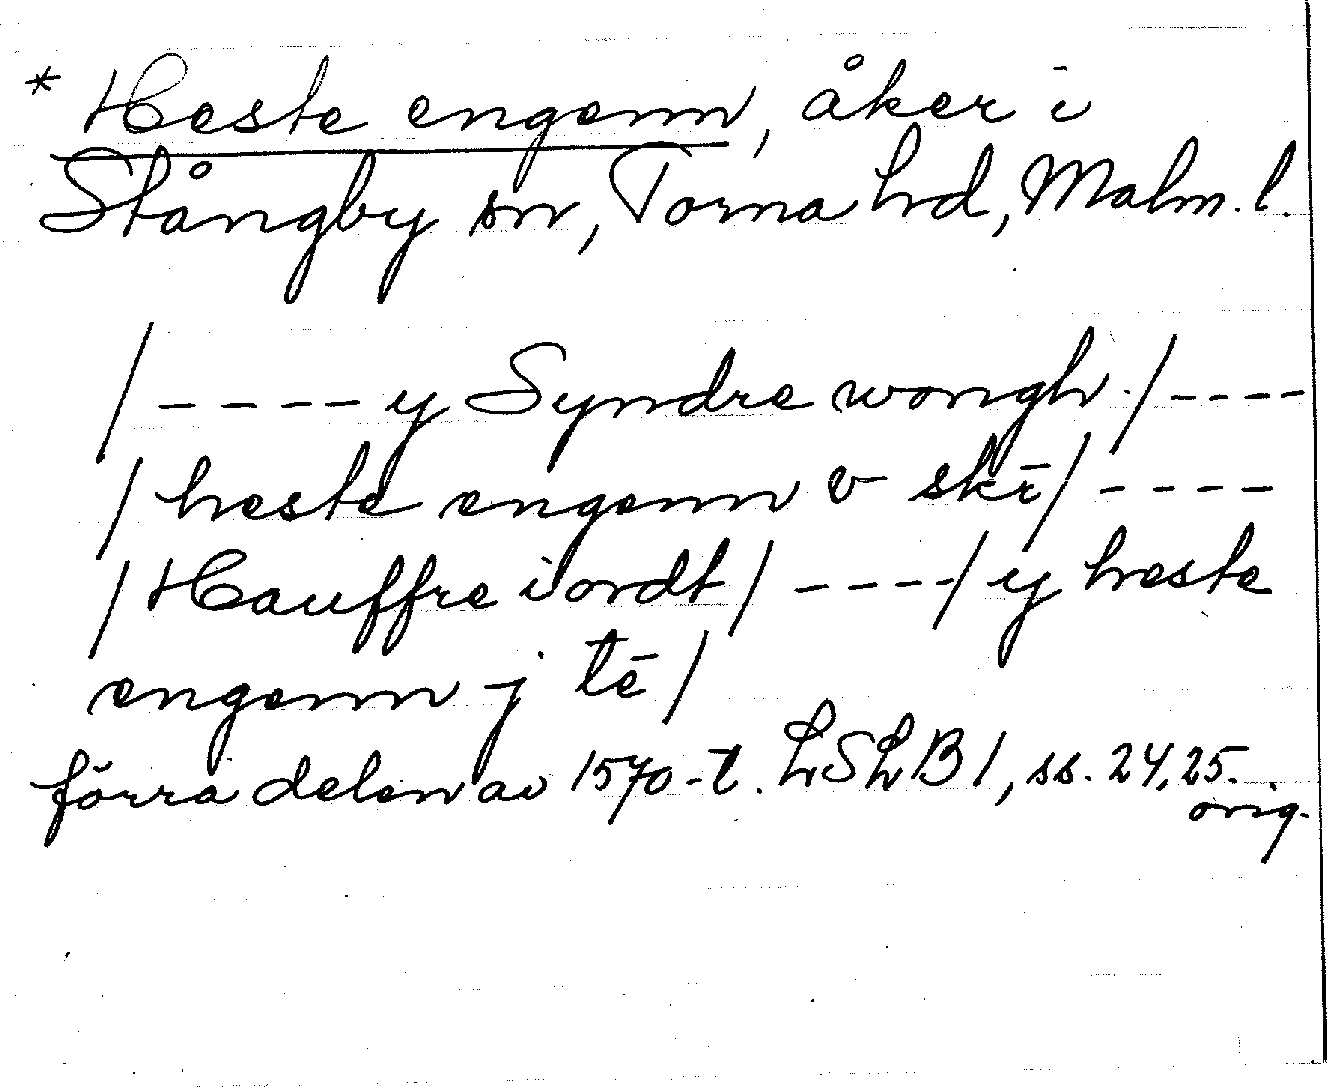 * Heste engenn, åker i
Stångby sn, Torna hd, Malm. l.
/ - - - - y Syndre wongh. / - - - -
/ heste engenn v skē / - - - -
/ Hauffre iordt / - - - - / y heste
engenn j tē /
förra delen av 1570-t. LSLB 1, ss. 24, 25.
orig.